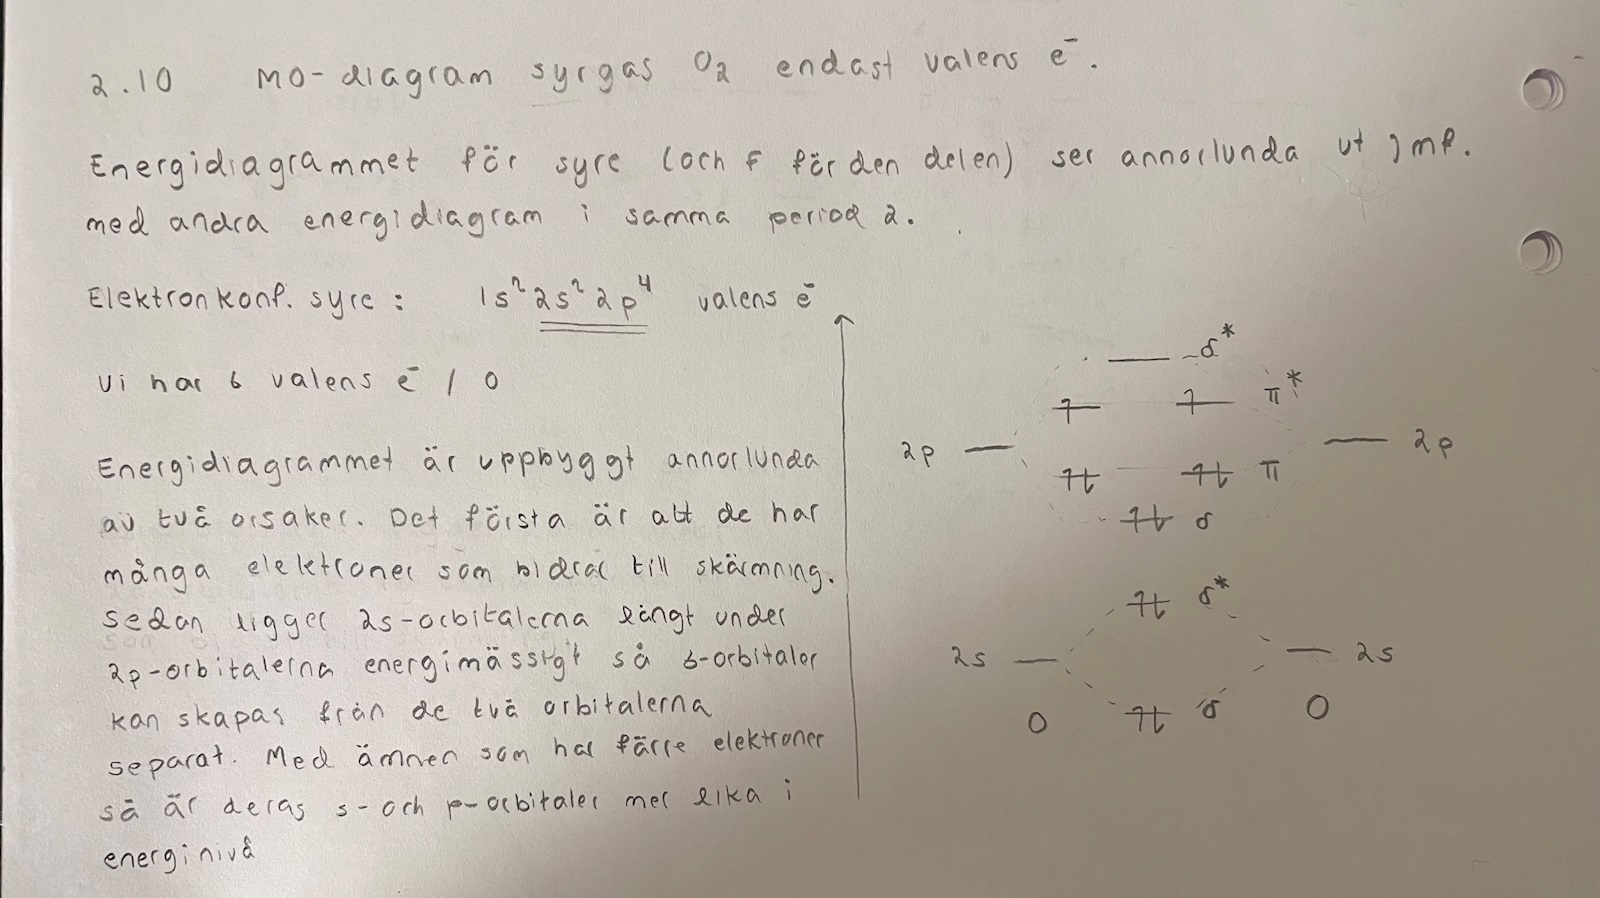 2.10 MO-diagram syrgas O₂ endast valens e⁻.
Energidiagrammet för syre (och F för den delen) ser annorlunda ut jmf.
med andra energidiagram i samma period 2.
Elektronkonf. syre: 1s² 2s² 2p⁴ valens e⁻
Vi har 6 valens e⁻ / O
Energidiagrammet är uppbyggt annorlunda
av två orsaker. Det första är att de har
många elektroner som bidrar till skärmning.
Sedan ligger 2s-orbitalerna långt under
2p-orbitalerna energimässigt så σ-orbitaler
kan skapas från de två orbitalerna
separat. Med ämnen som har färre elektroner
så är deras s- och p-orbitaler mer lika i
energinivå
σ*
π*
2p 2p
π
σ
σ*
2s 2s
O σ O